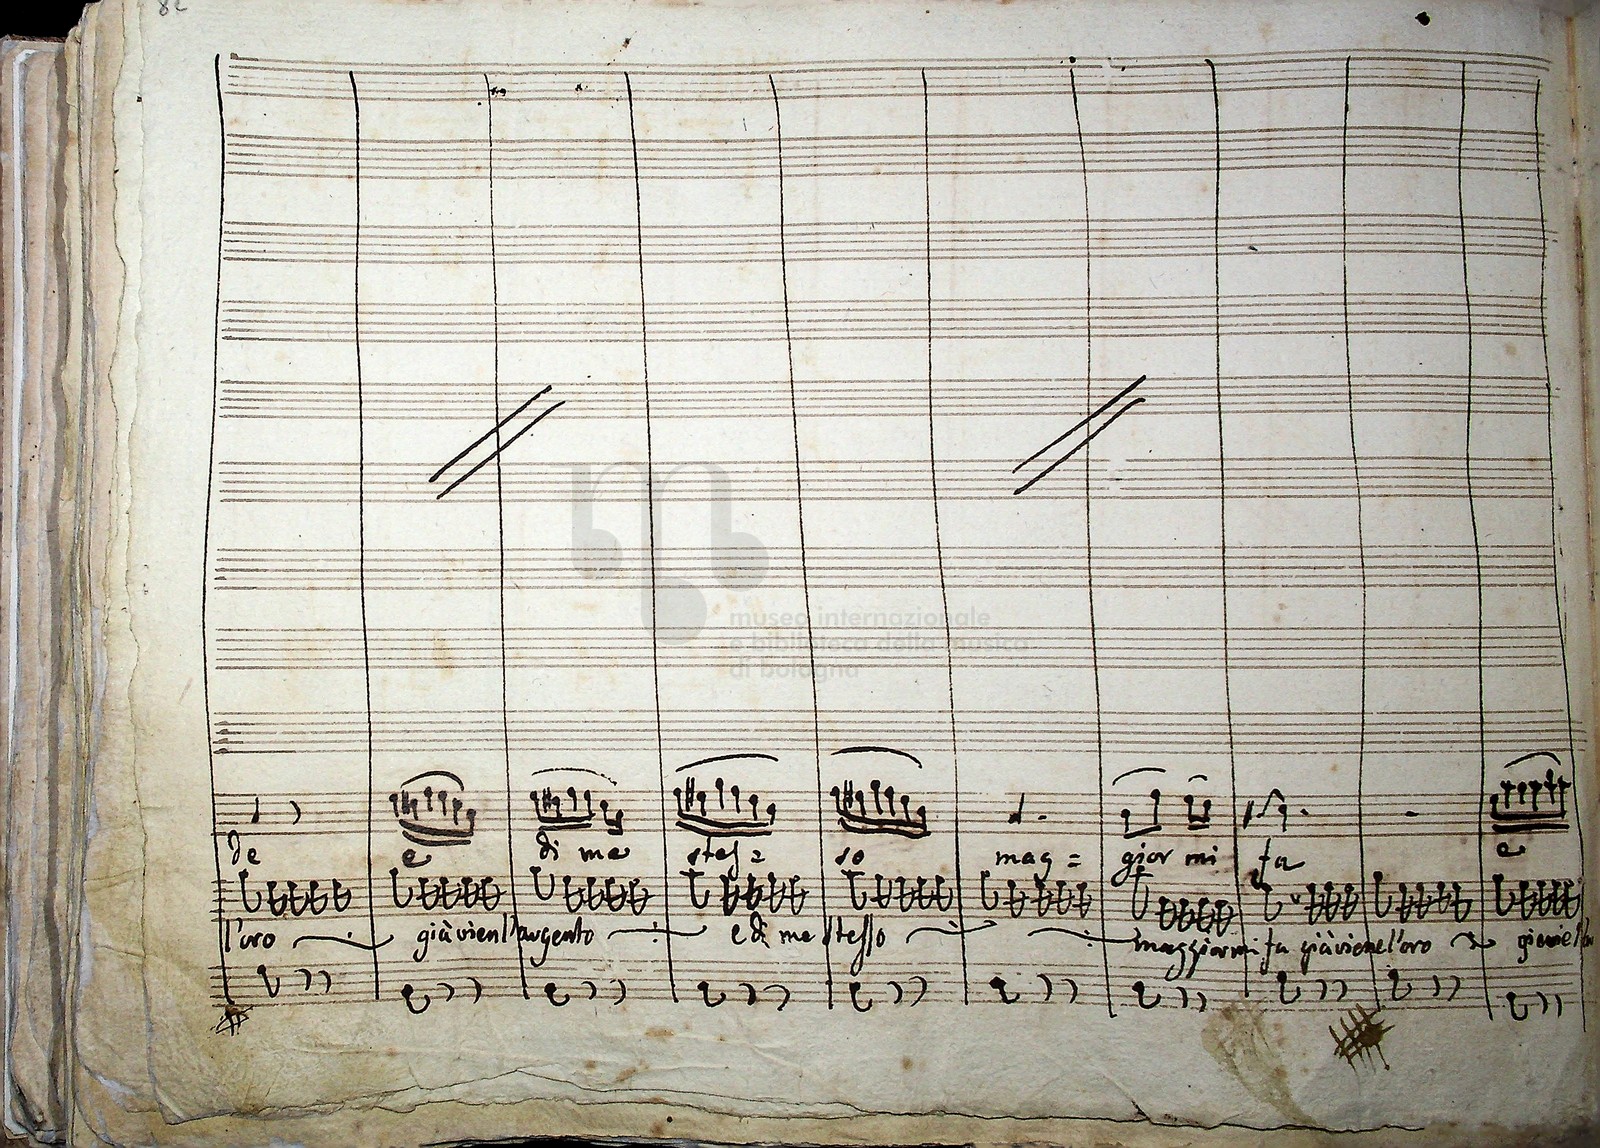 82
museo internazionale
e biblioteca della musica
di bologna
de e di me stes= so mag= gior mi fa e
l'oro già vien l'argento e di me stesso maggior mi fa già viene l'oro